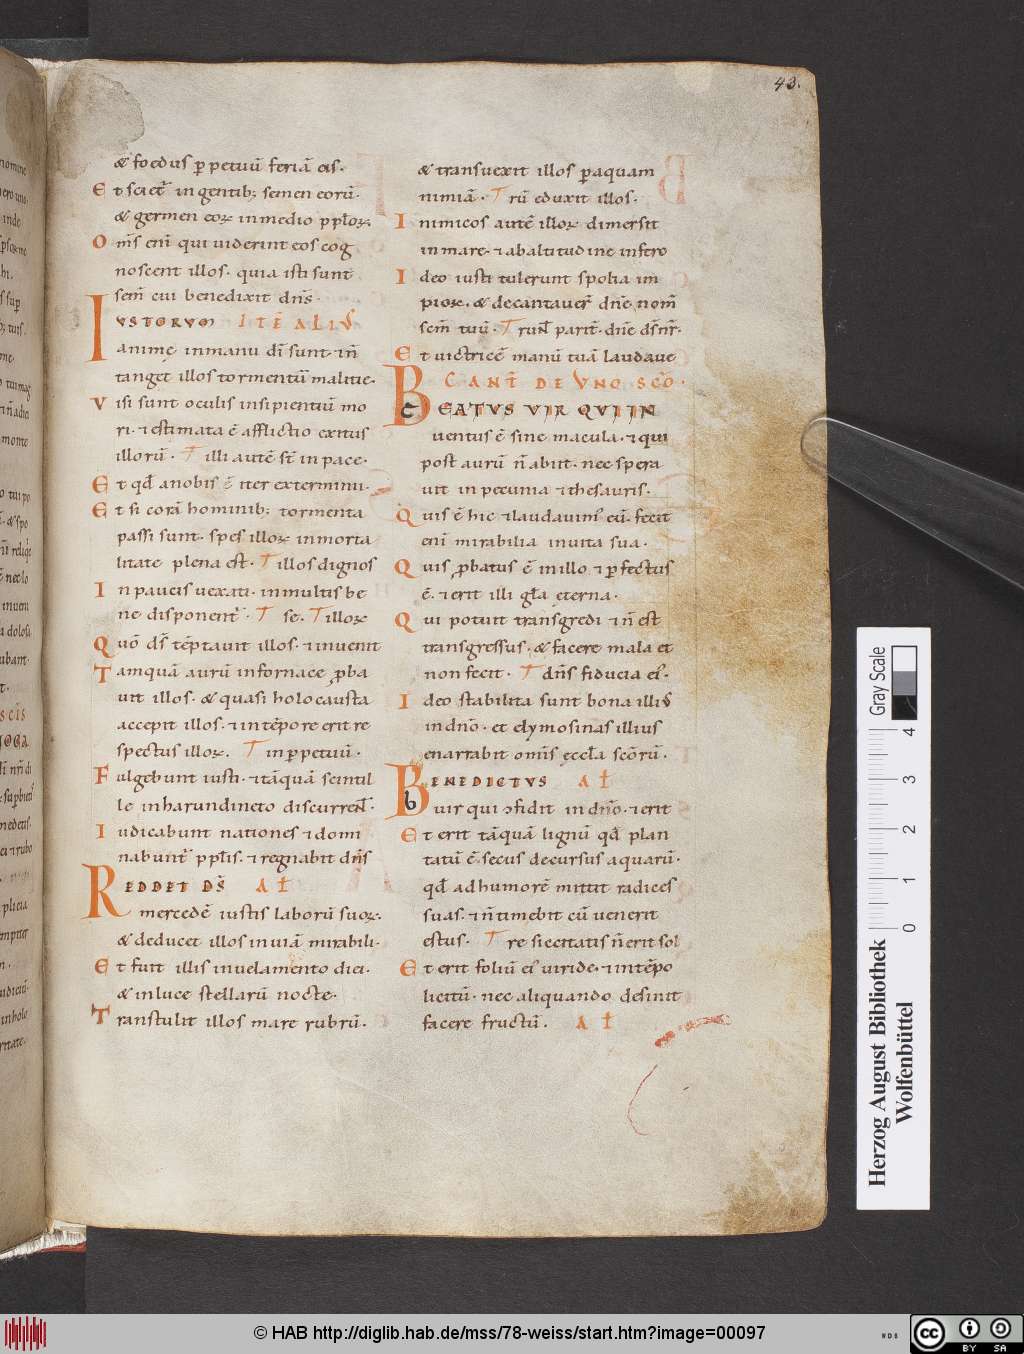 43.
& foedus ꝑpetuū feriā eis.
Et sciet᷒ in gentib; semen eorū.
& germen eoꝝ in medio ppłoꝝ.
Om̄s eni᷒ qui uiderint eos cog
noscent illos. quia isti sunt
sem̄ cui benedixit dn̄s.
IUSTORVM ITĒ ALIV̄
animę in manu dī sunt. & ñ
tanget illos tormentū malitię.
Visi sunt oculis insipientiū mo
ri. & estimata ē afflictio exitus
illorū. T illi autē st̄ in pace.
Et qđ a nobis ē iter exterminii.
Et si corā hominib; tormenta
passi sunt. spes illoꝝ inmorta
litate plena est. T illos dignos
In paucis uexati. in multis be
ne disponent᷒. T se. T illoꝝ
Quō ds̄ tēptauit illos. & inuenit
Tamquā aurū in fornace ꝓba
uit illos. & quasi holocausta
accepit illos. & in tēpore erit re
spectus illoꝝ. T in ꝑpetuū.
Fulgebunt iusti. & tāquā scintil
le in harundineto discurrent᷒.
Iudicabunt nationes & domi
nabunt᷒ ppłis. & regnabit dn̄s
REDDET DS̄ AŁ
mercedē iustis laborū suoꝝ.
& deducet illos in uiā mirabili.
Et fuit illis in uelamento diei.
& in luce stellarū nocte.
Transtulit illos mare rubrū.
& transuexit illos ꝑ aquam
nimiā. T rū eduxit illos.
Inimicos autē illoꝝ dimersit
in mare. & ab altitudine infero
Ideo iusti tulerunt spolia im
pioꝝ. & decantauer̄ dn̄e nom̄
sc̄m tuū. T pariť. dn̄e ds̄ nr̄.
Et uictricē manū tuā laudaue
CANT̄ DE VNO SC̄O.
BEATVS VIR QVI IN
uentus ē sine macula. & qui
post aurū n̄ abiit. nec spera
uit in pecunia & thesauris.
Quis ē hic & laudauim᷒ eū. fecit
eni᷒ mirabilia in uita sua.
Quis ꝓbatus ē in illo & ꝑfectus
ē. & erit illi gła ęterna.
Qui potuit transgredi & n̄ est
transgressus. & facere mala et
non fecit. T dn̄s fiducia ei᷒.
Ideo stabilita sunt bona illiꝰ
in dn̄o. et elymosinas illius
enarrabit omīs ęccła sc̄orū.
BENEDICTVS AŁ
uir qui ↄfidit in dn̄o. & erit
Et erit tāquā lignū qđ plan
tatū ē. secus decursus aquarū.
qđ ad humorē mittit radices
suas. & n̄ timebit cū uenerit
estus. T re siccitatis n̄ erit sol
Et erit foliū ei᷒ uiride. & in tēpo
licitū. nec aliquando desinit
facere fructū. AŁ
Gray Scale
0 1 2 3 4
Herzog August Bibliothek
Wolfenbüttel
© HAB http://diglib.hab.de/mss/78-weiss/start.htm?image=00097
WDB
CC BY SA